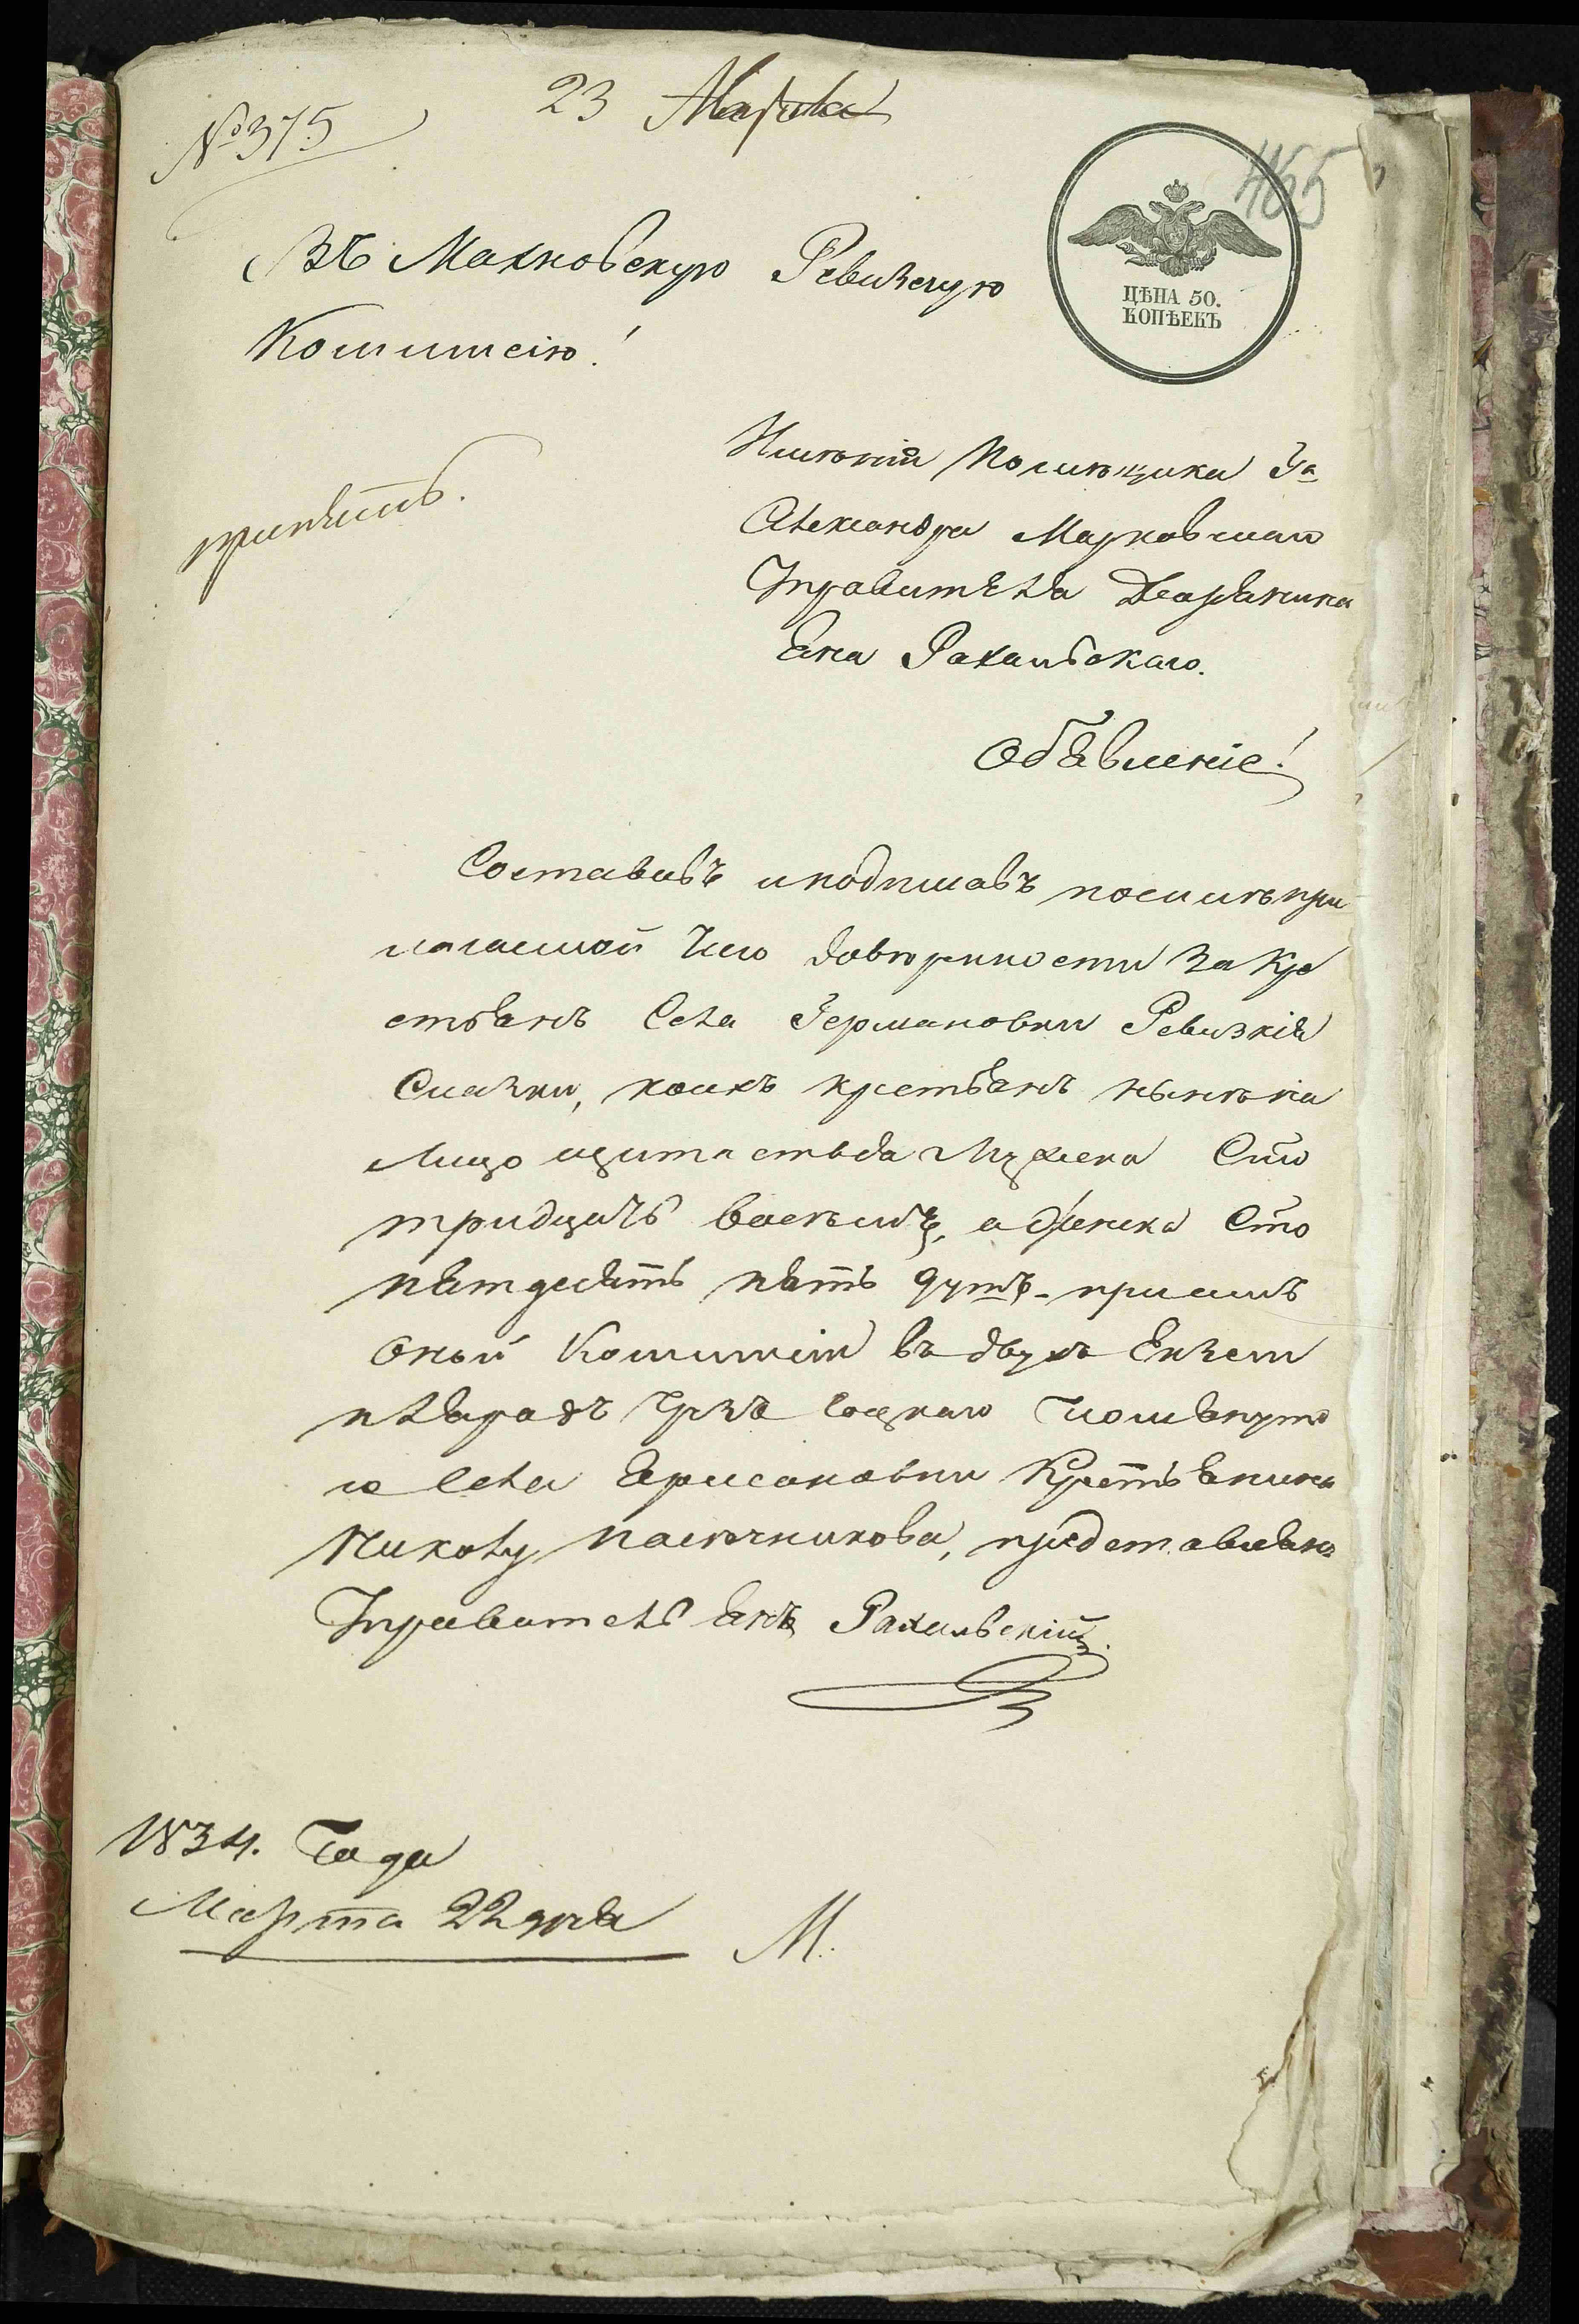 № 375
23 Марта
465
ЦѢНА 50.
КОПѢЕКЪ
Въ Махновскую Ревизскую
Комиисію!
принять.
Имѣнія Помѣщика Гна
Александра Марковскаго
Управителя Дворянина
Яна Рахальскаго.
Объявленіе!
Составивъ и подписавъ по силѣ при
лагаемой Его довѣрности За Кре
стьянъ Села Германовки Ревизкія
Сказки, коихъ крестьянъ нынѣ на
Лицо мужеска Сто
тридцать восьмъ, а женска Сто
пятдесятъ пять душъ
оной Комиисіи въ двухъ Екзем
плярахъ Чрезъ Соцкаго помянуто
го Села Германовки Крестьянина
Николу Пасечникова, представляю
Управитель Янъ Рахальскій.
1834. Года
Марта 22 дня
М.